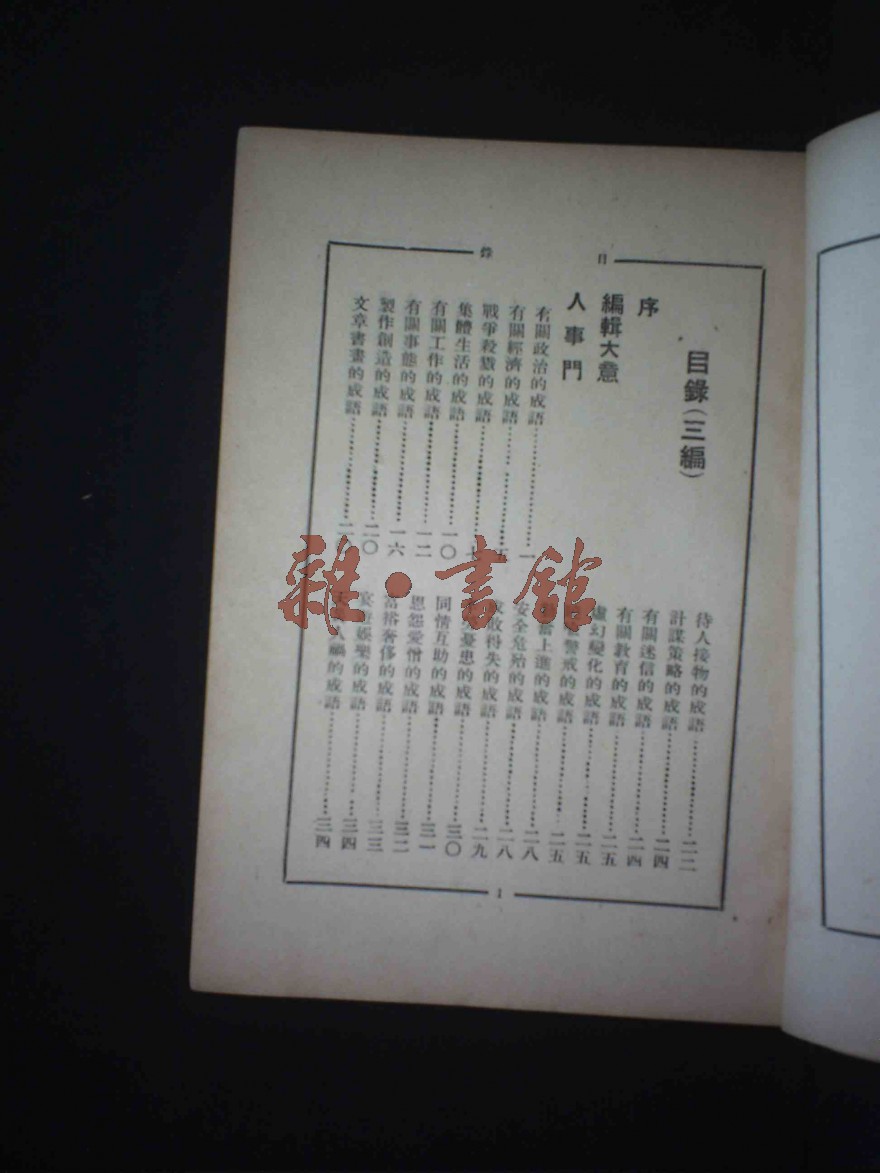 目 錄
目錄(三編)
序
編輯大意
人事門
有關政治的成語…………一
有關經濟的成語…………五
戰爭殺戮的成語…………七
集體生活的成語…………一〇
有關工作的成語…………一二
有關事態的成語…………一六
製作創造的成語…………二〇
文章書畫的成語…………二
待人接物的成語…………二二
計謀策略的成語…………二四
有關迷信的成語…………二四
有關教育的成語…………二五
虛幻變化的成語…………二五
警戒的成語…………二五
上進的成語…………二八
安全危殆的成語…………二八
成敗得失的成語…………二九
憂患的成語…………三〇
同情互助的成語…………三一
恩怨愛憎的成語…………三二
富裕奢侈的成語…………三三
宴遊娛樂的成語…………三四
人禍的成語…………三四
1
雜·書館